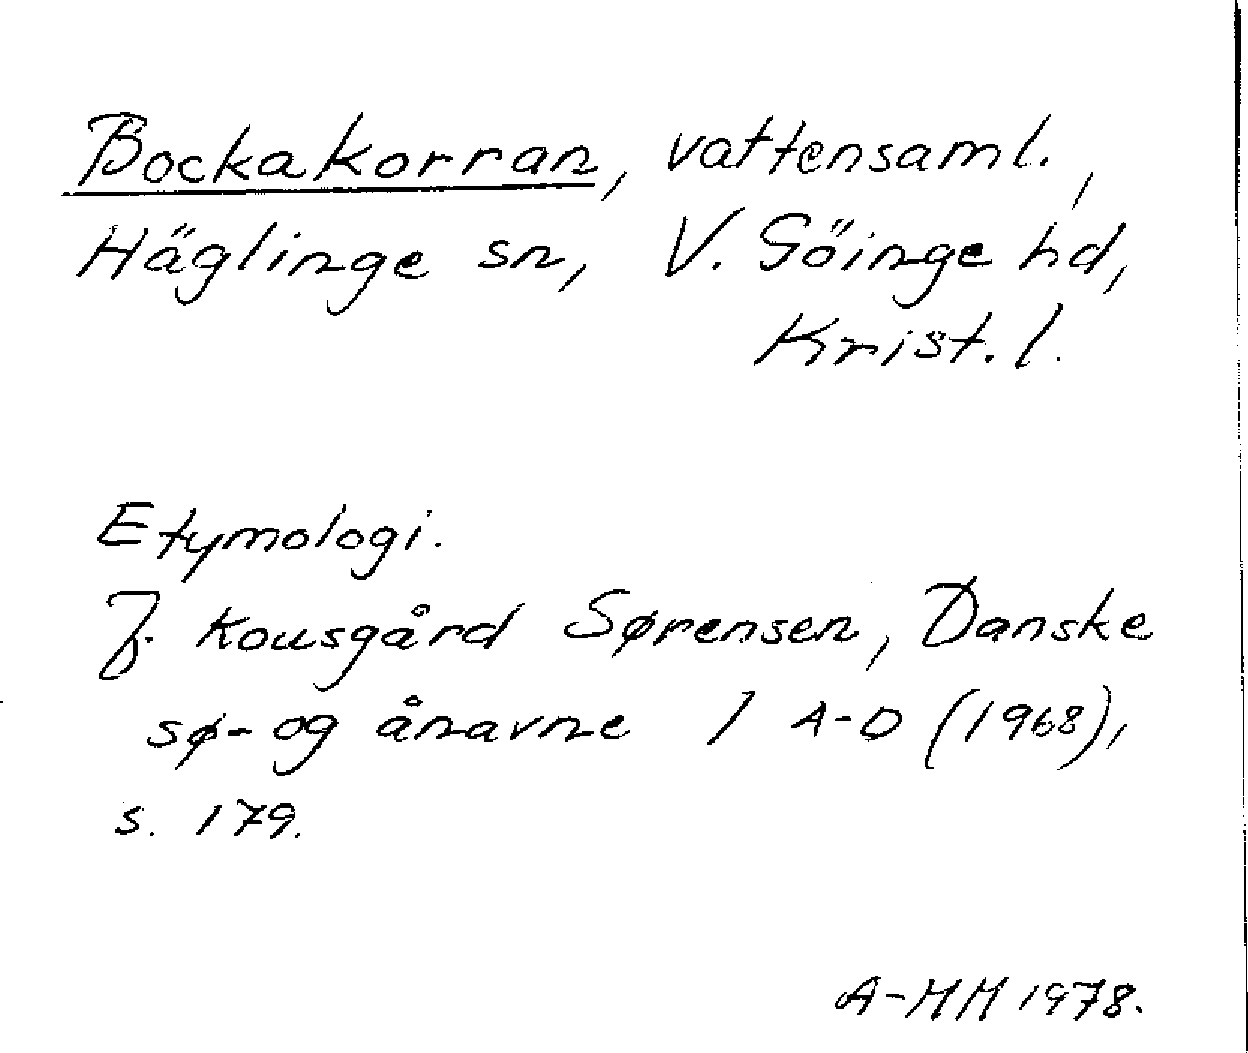 Bockakorran, vattensaml.,
Häglinge sn, V. Göinge hd,
Krist. l.
Etymologi.
J. Kousgård Sørensen, Danske
sø- og ånavne 1 A-D (1968),
s. 179.
A-MH 1978.